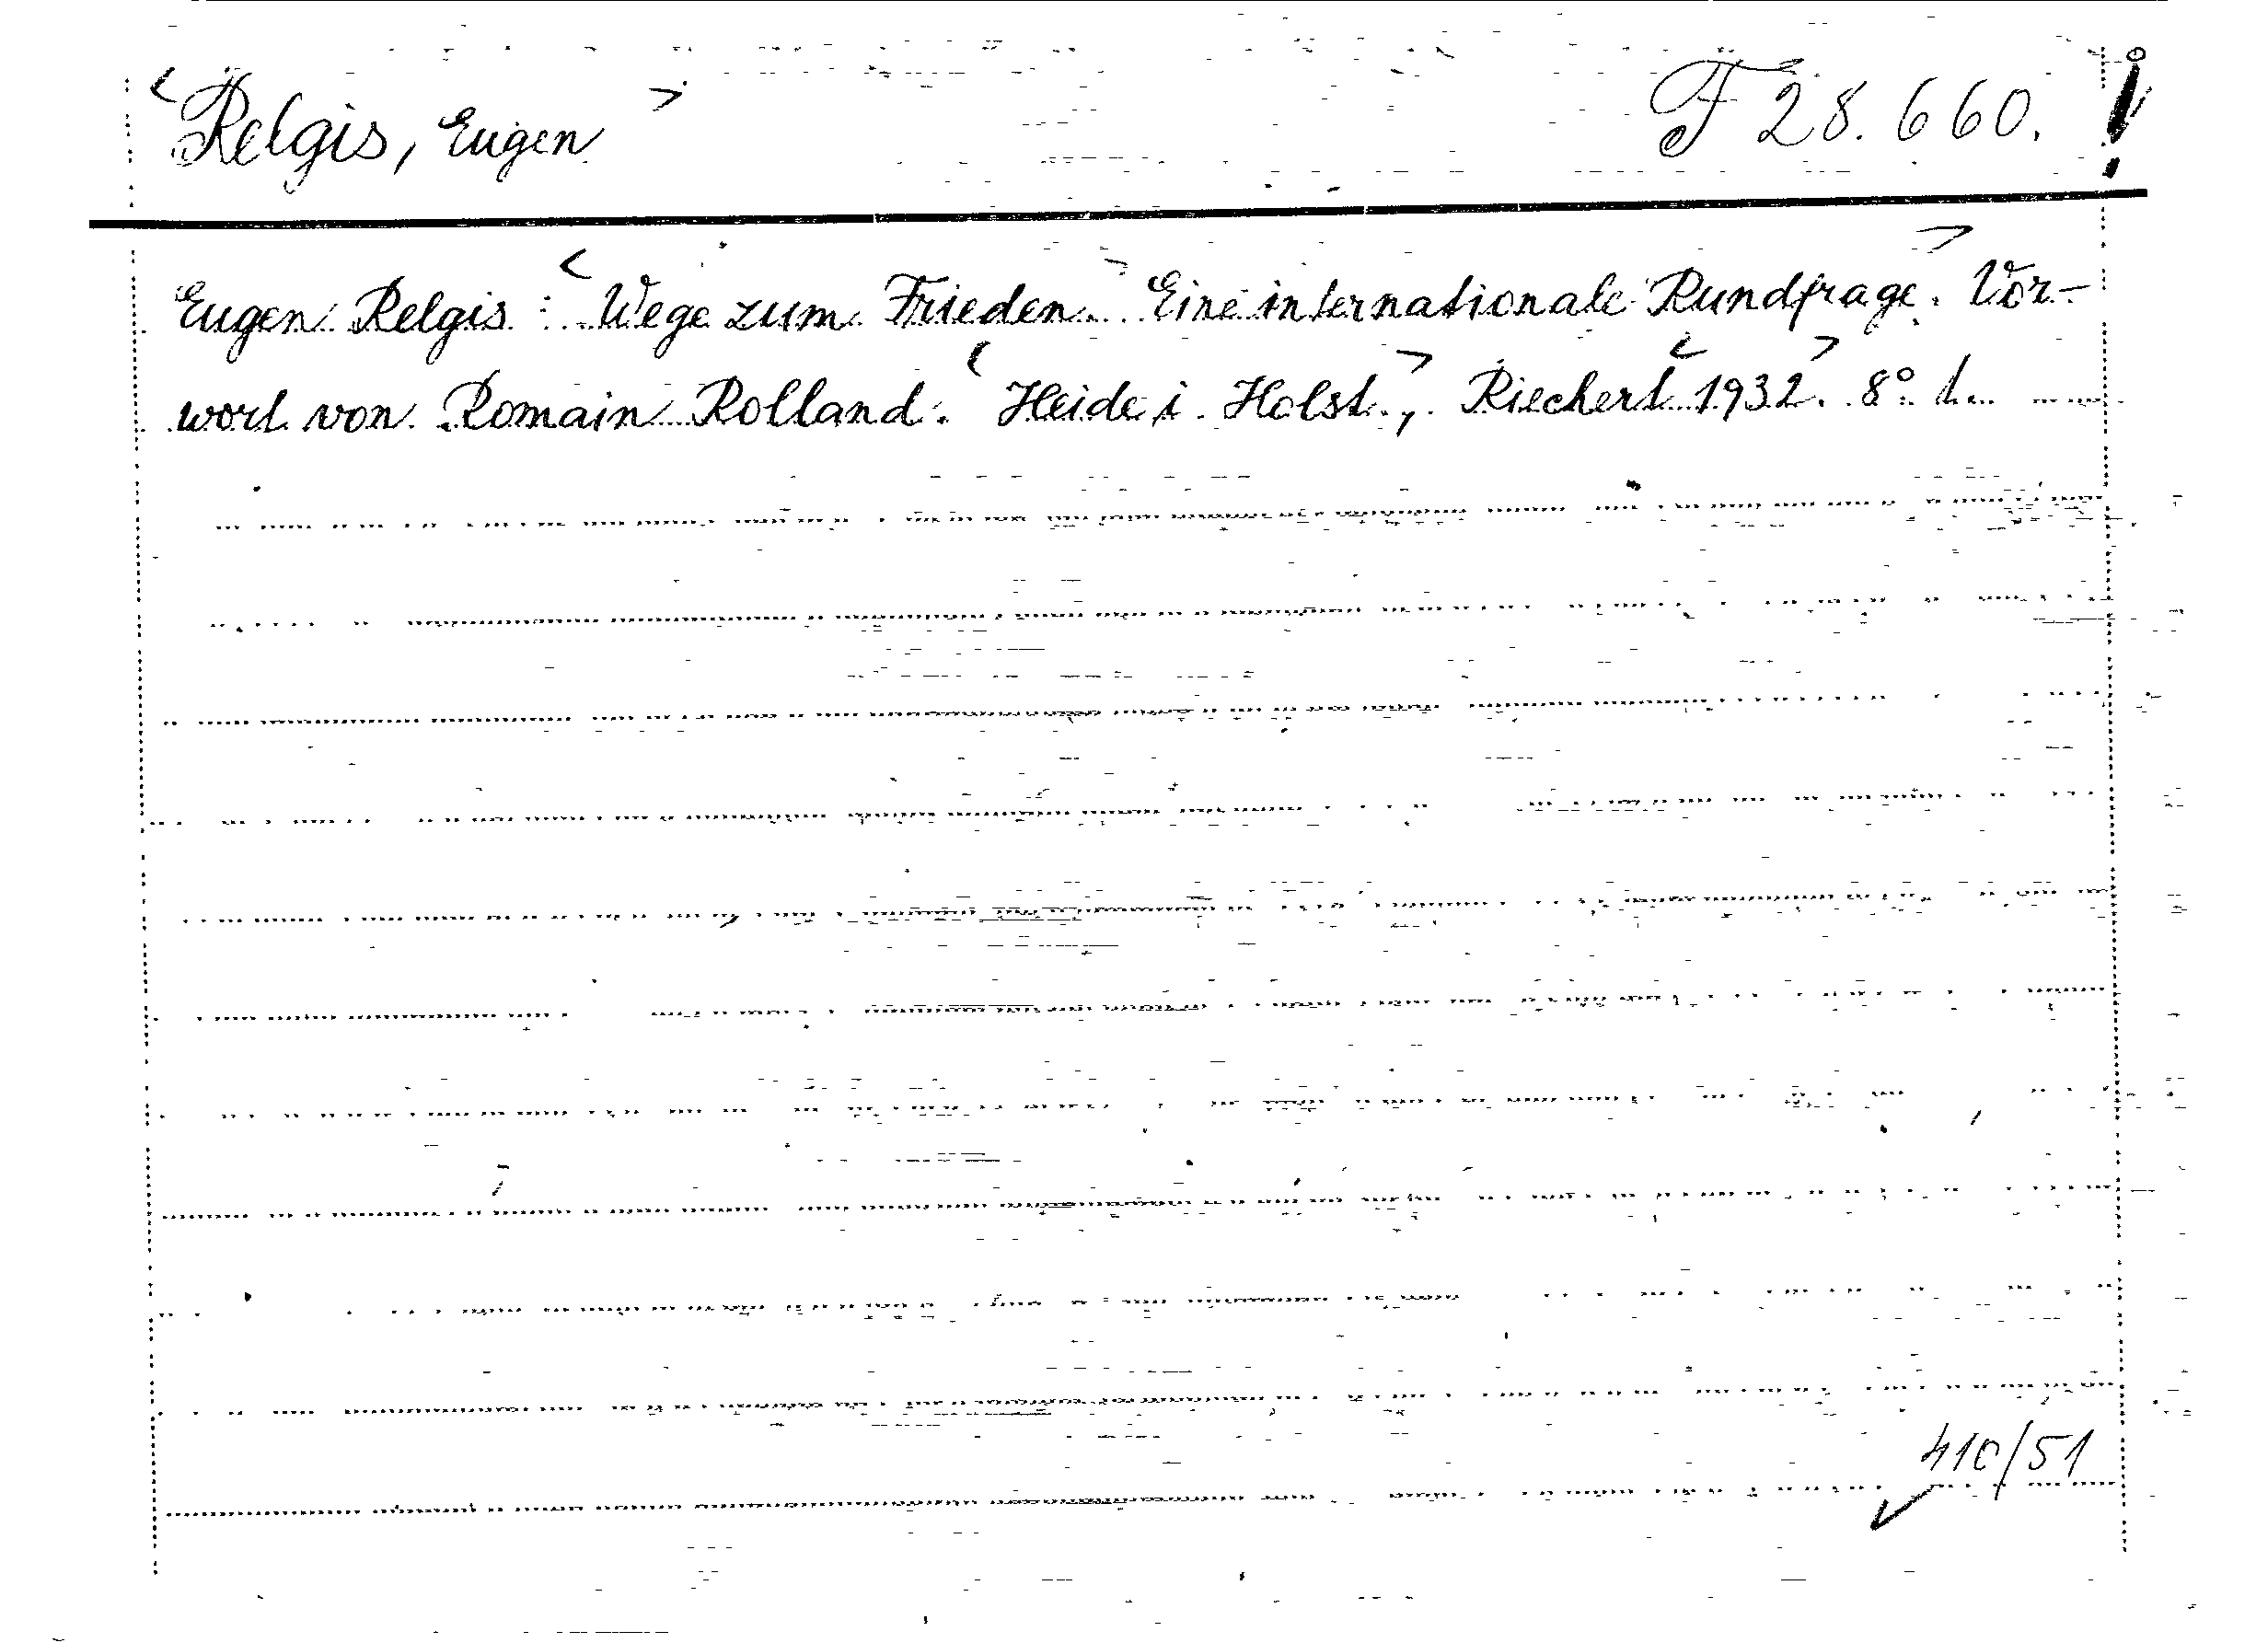 <Relgis, Eugen> F 28.660.
Eugen Relgis: <Wege zum Frieden.> Eine internationale Rundfrage.> Vor-
wort von Romain Rolland. <Heide i. Holst.,> Riechert <1932>. 8° 1.
410/51